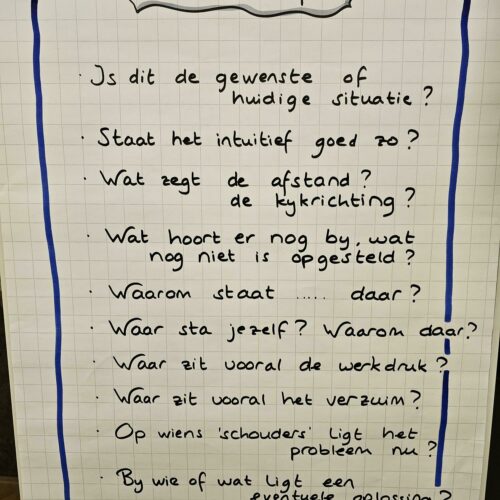 · Is dit de gewenste of
huidige situatie?
· Staat het intuitief goed zo?
· Wat zegt de afstand?
de kykrichting?
· Wat hoort er nog by, wat
nog niet is opgesteld?
· Waarom staat ..... daar?
· Waar sta jezelf? Waarom daar?
· Waar zit vooral de werkdruk?
· Waar zit vooral het verzuim?
· Op wiens 'schouders' ligt het
probleem nu?
· By wie of wat ligt een
eventuele oplossing?